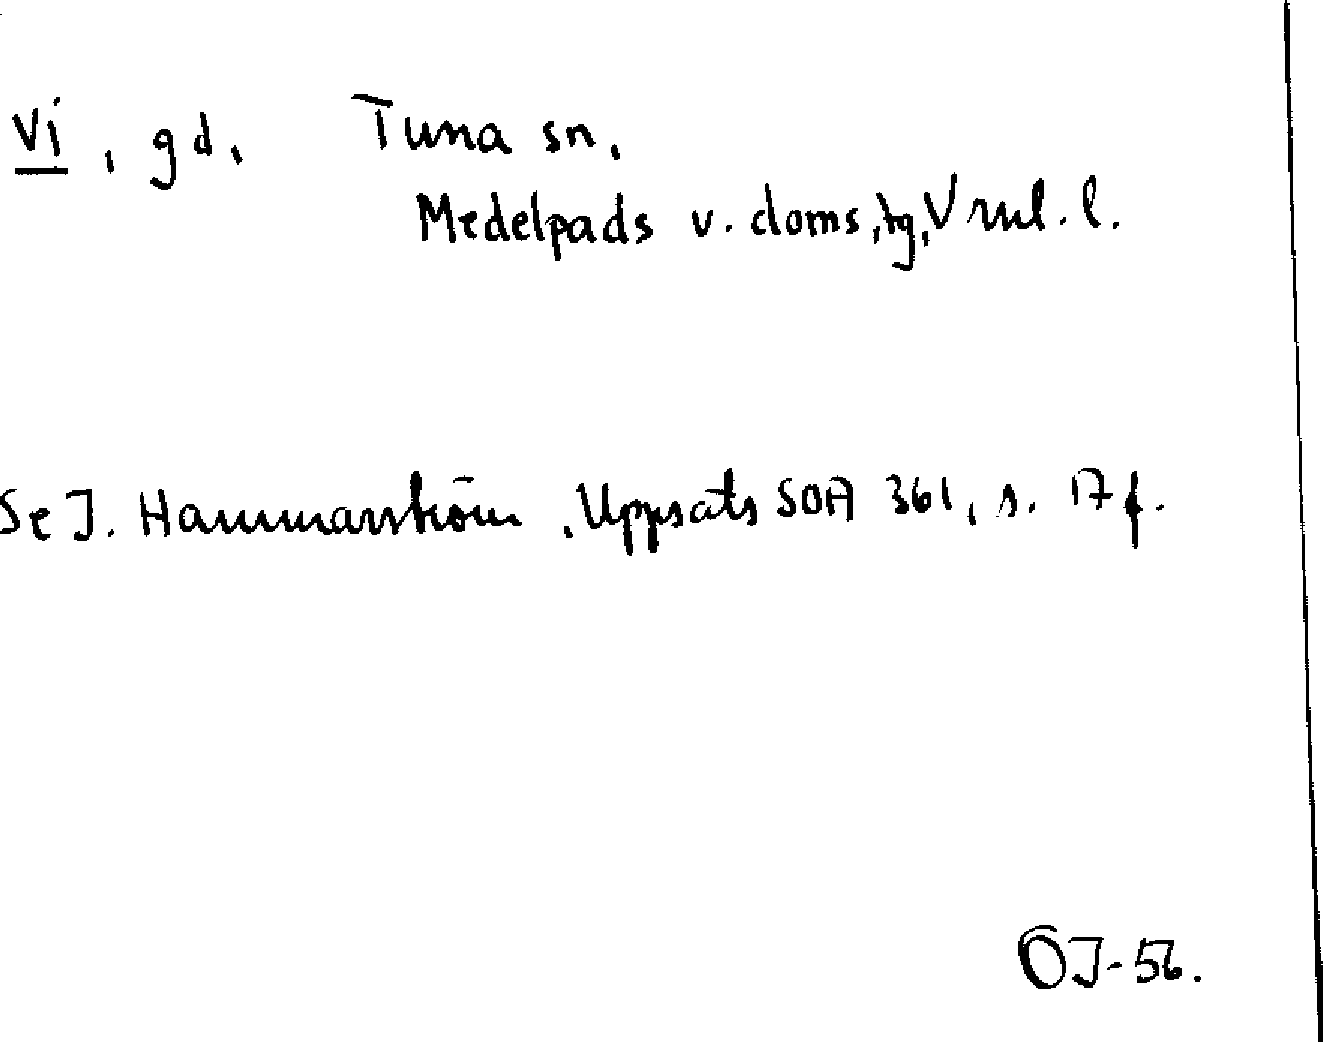 Vi, gd, Tuna sn,
Medelpads v. doms,tg,Vnl. l.
Se J. Hammarström, Uppsats SOA 361, s. 17 f.
ÖJ-56.